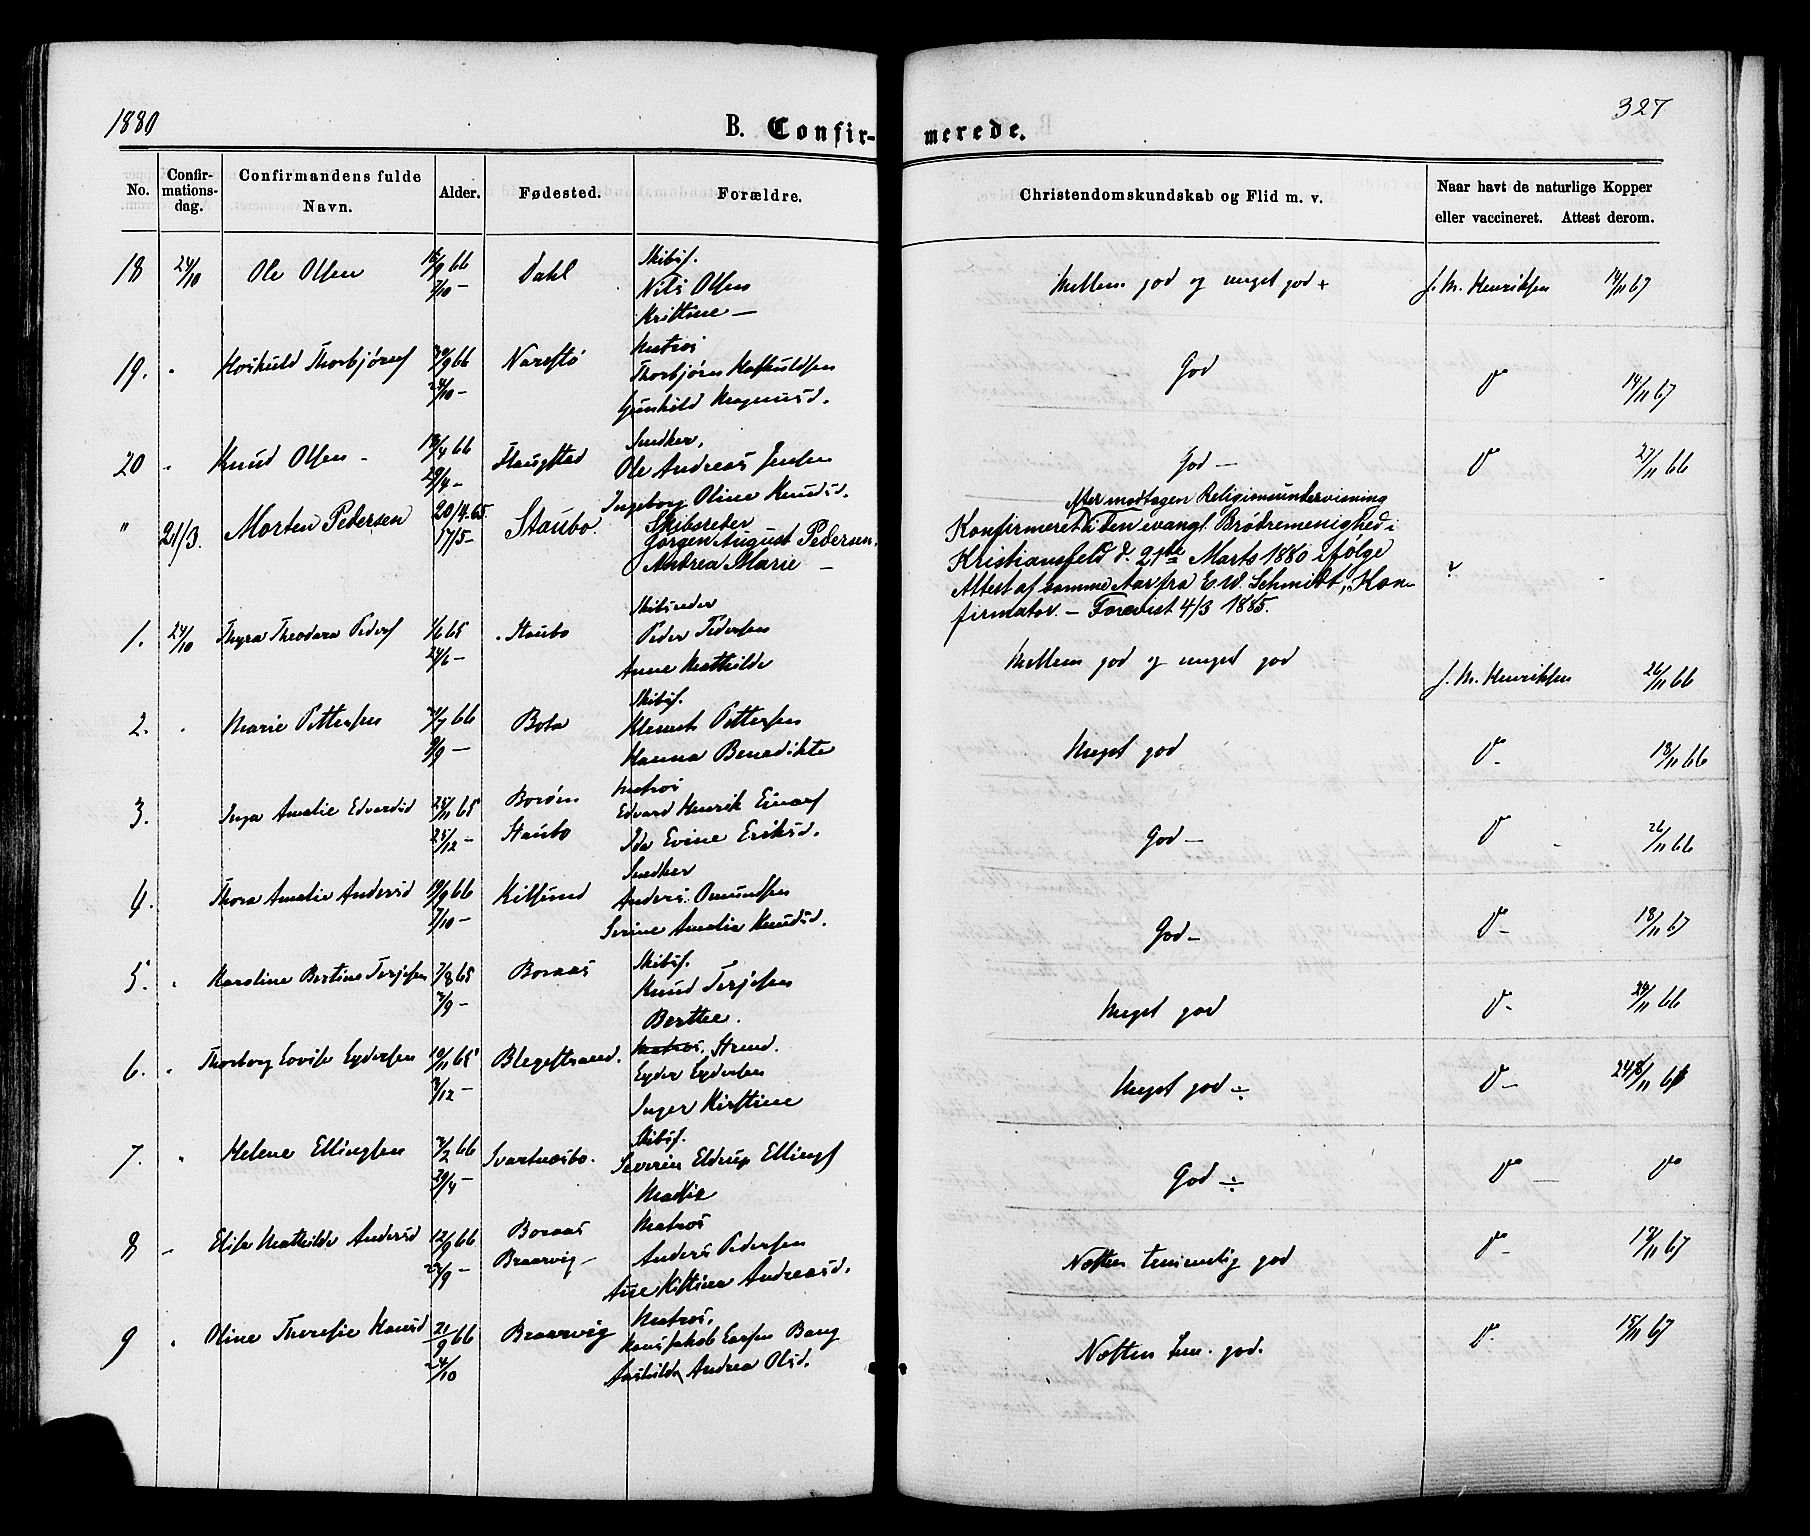 1880
327
B. Confir-
merede.
No.
Confir-
mations-
dag.
Confirmandens fulde
Navn.
Alder.
Fødested.
Forældre.
Christendomskundskab og Flid m. v.
Naar havt de naturlige Kopper
eller vaccineret. Attest derom.
18 24/10 Ole Olsen 66 7/10 — Dahl
Skibsf.
Nils Olsen
Kristine —
Mellem god og meget god + J. M. Henriksen 14/11 67
19. " Hoskuld Thorbjørns 9 66 24/10 — Narestø
Matros
Thorbjørn Hoskuldsen
Gunhild Magnusd.
God V 14/11 67
20 " Knud Olsen 4 66 29/4 —
Snedker,
Ole Andreas Jensen
Ingeborg Oline Knudsd.
God — V 27/11 66
" 21/3. Morten Pedersen 20/4.65. 17/5 — Staubo.
Skibsreder
Jørgen August Pedersen,
Andrea Marie —
efter modtagen Religionsundervisning
Konfirmeret i den evangl. Brødremenighed i
Kristiansfeld d. 21de Marts 1880 ifølge
Attest af samme Aar fra E. W. Schmidt, Kon-
firmator. — Forevist 4/3 1885.
1. 24/10 Thyra Theodora Peders 1/6 65 24/6 — Staubo
Skibsreder
Peder Pedersen
Anne Mathilde
Mellem god og meget god J. M. Henriksen 26/11 66
2. " Marie Pettersen 7 66 9/9 — Bota
Skibsf.
Klemet Pettersen
Hanna Benedikte
Meget god V — 18/11 66
3. Inga Amalie Edvardsd 11 65 25/12 — Borøen
Staubo
Matros
Edvard Henrik Einars
Ida Evine Eriksd.
God — V 26/11 66
4. Thora Amalie Andersd 19/9 66 7/10 — Kilsund
Snedker
Anders Omundsen
Serine Amalie Knudsd.
God — V — 18/11 67
5. " Karoline Bertine Terjesen 7/8 65 9 — Boraas
Skibsf.
Knud Terjesen
Berthe.
Meget god V — 11 66
6. " Thorborg Lovise Eydersen 19/11 65 3/12 —
Matros, Strand.
Eyder Eydersen
Inger Kirstine
Meget god ÷ V —
7. " Helene Ellingsen 2 66 29/4 — Svartnæsbo.
Skibsf.
Severin Eldrup Ellings
God ÷ V — V
8 " Elise Mathilde Andersd 12/9 66 9 — Boraas
Braarvig —
Matros
Anders Pedersen
Ane Kistine Andreasd.
Næsten temmelig god V — 11 67
9 " Oline Theresie Hansd 21/9 66 24/10 Braarvig
Matros,
Hans Jakob Larsen Bang
Aashilda Andrea Olsd.
Næsten tem. god. V — 15/11 67